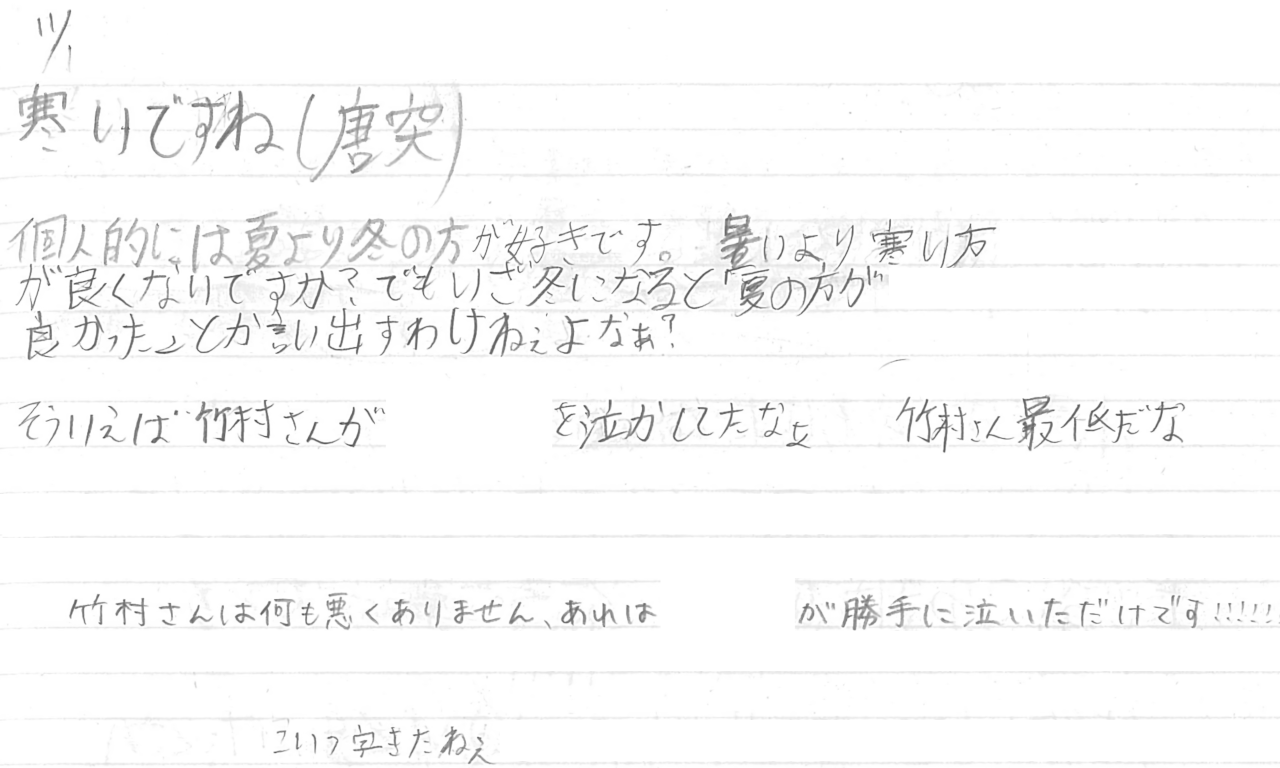 11/1
寒いですね(唐突)
個人的には夏より冬の方が好きです。 暑いより寒い方
が良くないですか?でもいざ冬になると「夏の方が
良かった」とか言い出すわけねぇよなぁ?
そういえば竹村さんが を泣かしてたなぁ 竹村さん最低だな
竹村さんは何も悪くありません、あれは が勝手に泣いただけです!!!!!
こいつ字きたねぇ